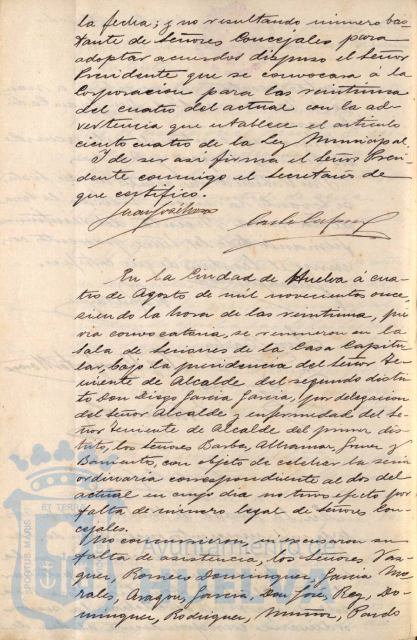 la fecha; y no resultando número bas-
tante de Señores Concejales para
adoptar acuerdos dispuso el Señor
Presidente que se convocase á la
Corporación para las veintiuna
del cuatro del actual con la ad-
vertencia que establece el artículo
ciento cuatro de la Ley Municipal.
Y de ser así firma el Señor Presi-
dente conmigo el Secretario de
que certifico.
En la Ciudad de Huelva á cua-
tro de Agosto de mil novecientos once
siendo la hora de las veintiuna, pré-
via convocatoria, se reunieron en la
Sala de Sesiones de la Casa Capitu-
lar, bajo la presidencia del Señor Te-
niente de Alcalde del segundo distri-
to Don Diego García García, por delegación
del Señor Alcalde y enfermedad del Se-
ñor Teniente de Alcalde del primer dis-
trito, los señores Barba, Gomez y
con objeto de celebrar la sesión
ordinaria correspondiente al dos del
actual en cuyo dia no tuvo efecto por
falta de número legal de Señores Con-
cejales.
No concurrieron ni escusaron su
falta de asistencia, los Señores Vaz-
quez, Romero Dominguez, Garcia Mo-
rales, Aragon, Garcia, Don José, Rey, Do-
minguez, Rodriguez, Muñoz, Pardo
Ayuntamiento de
HUELVA